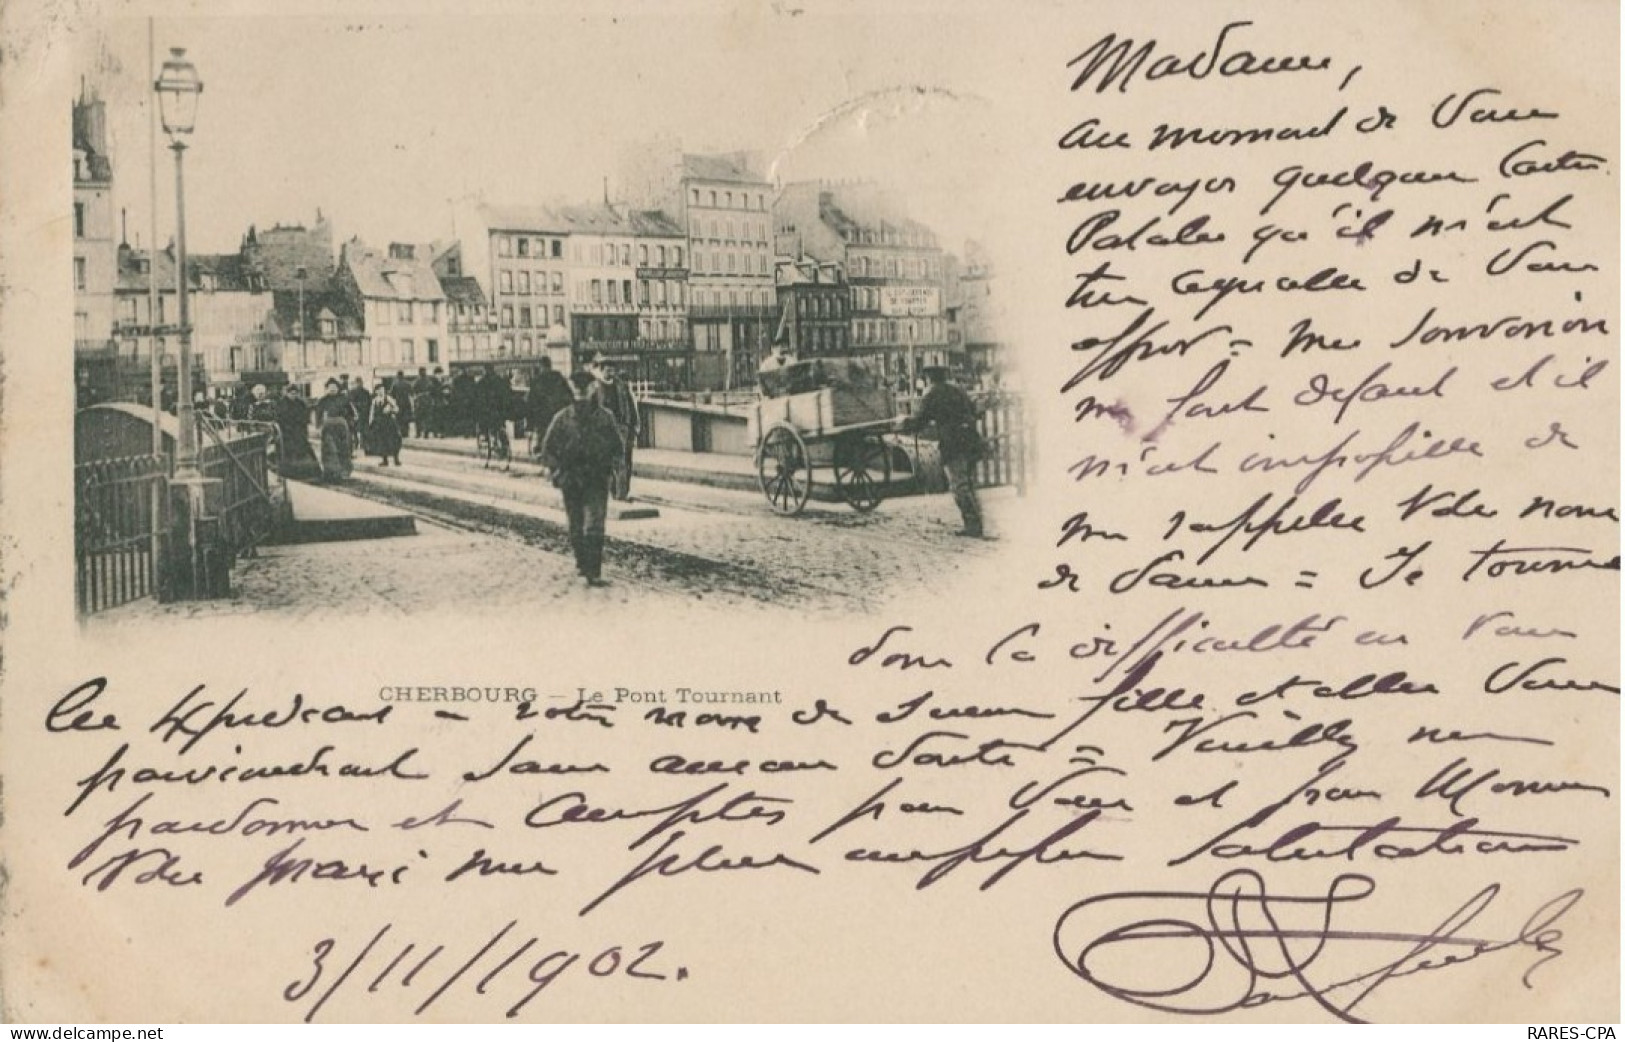 Madame,
Au moment de Vous
envoyer quelques Cartes
Postales qu'il m'est
très agréable de Vous
offrir = mes souvenirs
me font défaut et il
m'est impossible de
me rappeler Vôtre nom
de = Je tourne
donc la difficulté en Vous
les expédiant - votre nom de jeune fille et elles Vous
CHERBOURG — Le Pont Tournant
parviendront sans aucun doute = Veuillez me
pardonner et acceptez pour Vous et pour Monsieur
Vôtre mari mes plus salutations
3/11/1902.
RARES-CPA